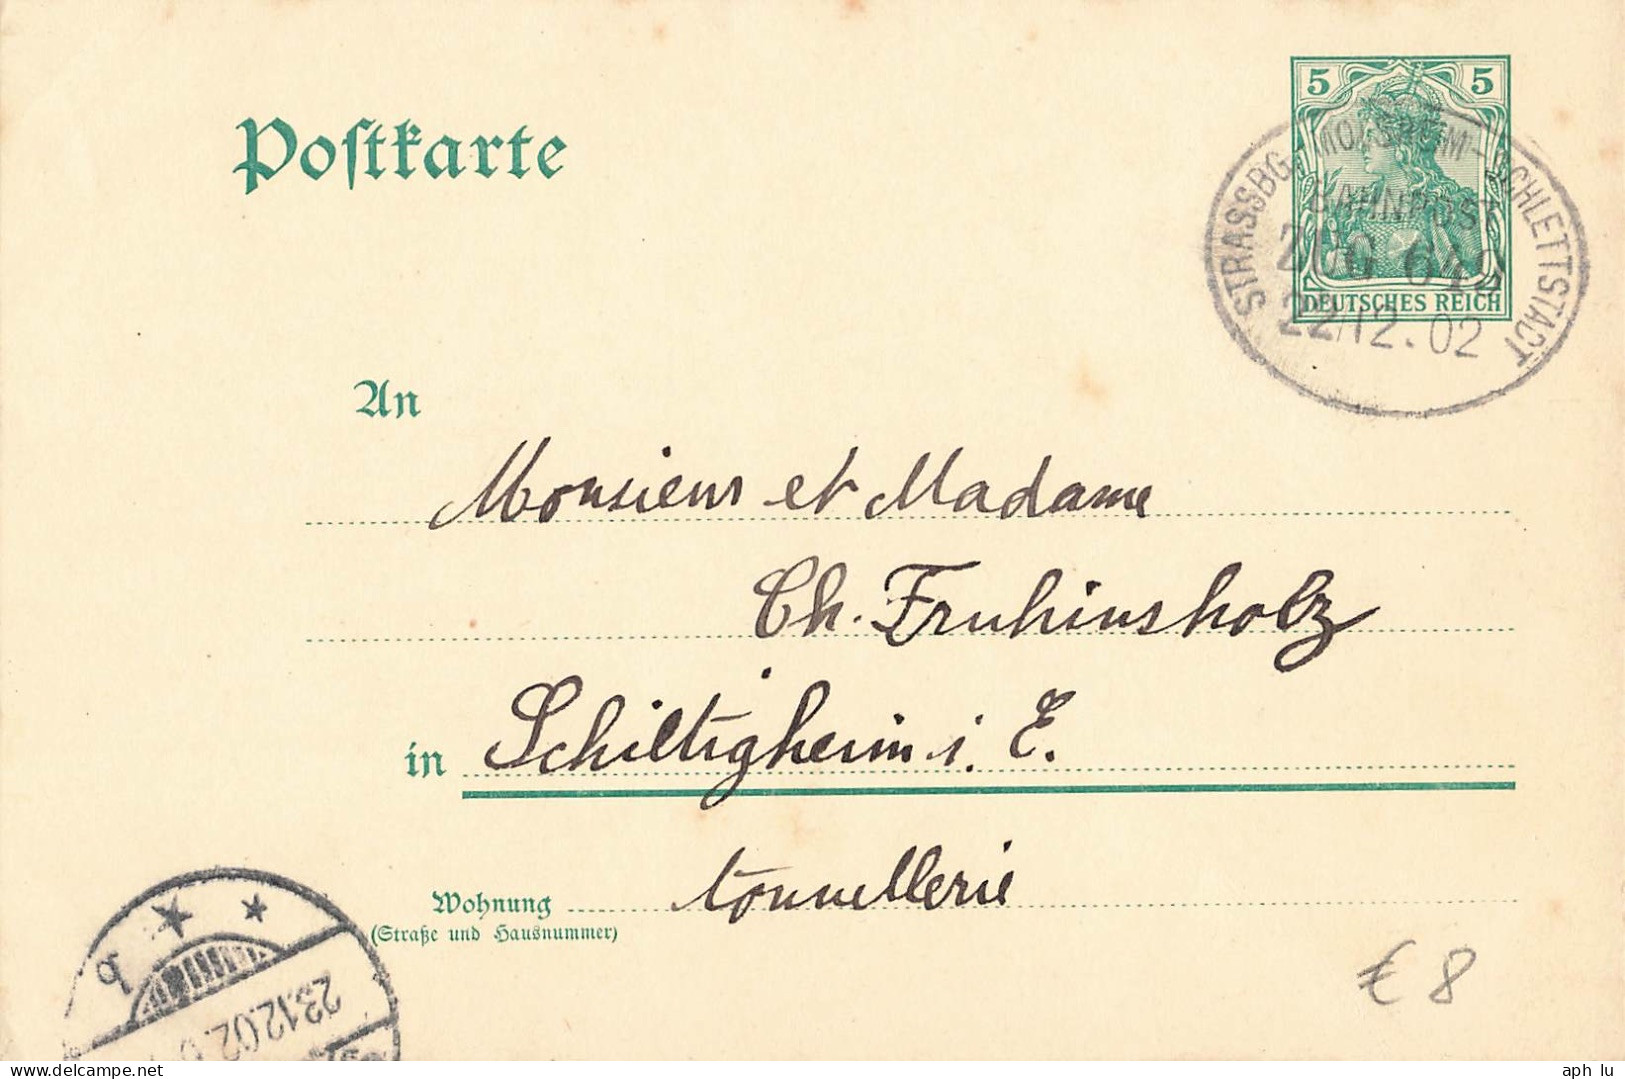 5 5
Postkarte
STRASSBG.-MOLSHEIM-SCHLETTSTADT
BAHNPOST
ZUG
DEUTSCHES REICH
22.12.02
An
Monsieur et Madame
Ch. Fruhinsholz
in Schiltigheim i. E.
Wohnung tonnellerie
(Straße und Hausnummer)
b
23.12.02.
€ 8
aph_lu